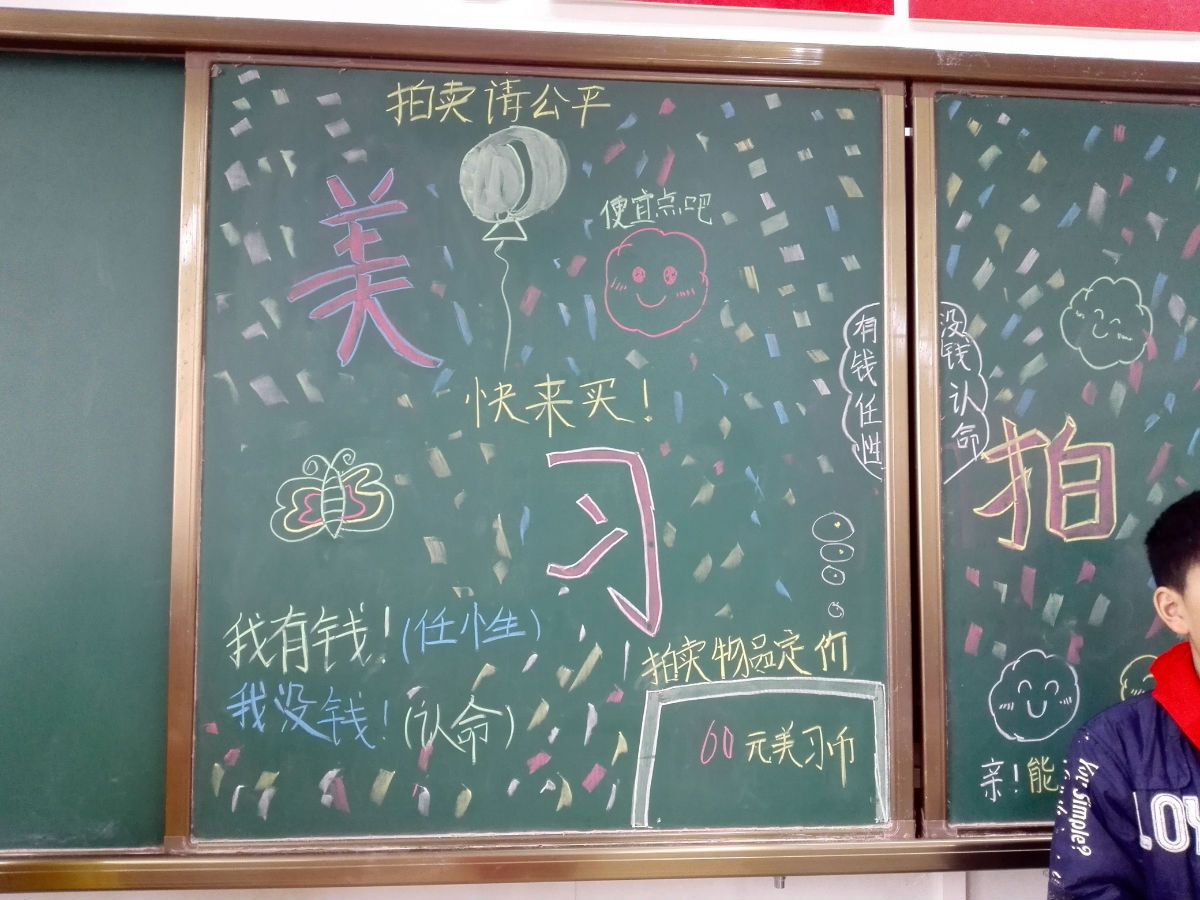 拍卖请公平
美
便宜点吧
快来买！
习
有钱任性
没钱认命
拍
我有钱！(任性)
我没钱！(认命)
拍卖物品定价
60元美习币
亲！能
You Simple?
.04